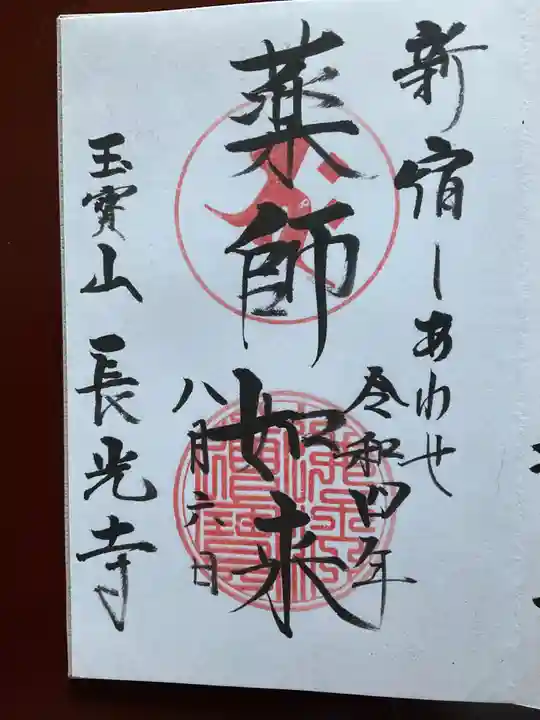 新宿しあわせ
令和四年
薬師如来
八月六日
玉寳山 長光寺